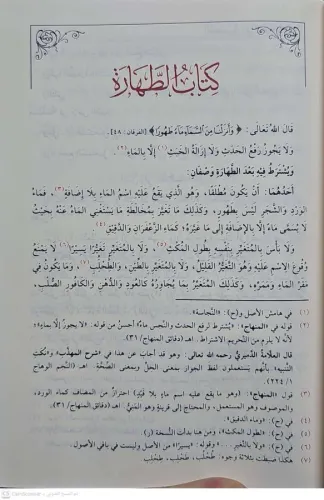 كِتَابُ الطَّهَارَةِ
قَالَ اللهُ تَعَالَى : ﴿ وَأَنزَلْنَا مِنَ السَّمَاءِ مَاءً طَهُورًا ﴾ [الفرقان : ٤٨] .
وَلَا يَجُوزُ رَفْعُ الحَدَثِ وَلَا إِزَالَةُ الخَبَثِ (١) إِلَّا بِالمَاءِ (٢) .
وَيُشْتَرَطُ فِيهِ بَعْدَ الطَّهَارَةِ وَصْفَانِ:
أَحَدُهُمَا: أَنْ يَكُونَ مُطْلَقًا، وَهُوَ الَّذِي يَقَعُ عَلَيْهِ اسْمُ المَاءِ بِلَا إِضَافَةٍ (٣) ، فَمَاءُ
الوَرْدِ وَالشَّجَرِ لَيْسَ بِطَهُورٍ، وَكَذَلِكَ مَا تَغَيَّرَ بِمُخَالَطَةِ مَا يَسْتَغْنِي المَاءُ عَنْهُ بِحَيْثُ
لَا يُسَمَّى مَاءً إِلَّا بِالإِضَافَةِ إِلَى مَا غَيَّرَهُ؛ كَمَاءِ الزَّعْفَرَانِ وَالدَّقِيقِ (٤) .
وَلَا بَأْسَ بِالمُتَغَيِّرِ بِنَفْسِهِ بِطُولِ المُكْثِ (٥) ، وَلَا بِالمُتَغَيِّرِ تَغَيُّرًا يَسِيرًا (٦) لَا يَمْنَعُ
وُقُوعَ الِاسْمِ عَلَيْهِ وَهُوَ التَّغَيُّرُ القَلِيلُ، وَلَا بِالمُتَغَيِّرِ بِالطِّينِ، وَالطُّحْلُبِ (٧) ، وَمَا يَكُونُ فِي
مَقَرِّ المَاءِ وَمَمَرِّهِ، وَكَذَلِكَ المُتَغَيِّرُ بِمَا يُجَاوِرُهُ كَالعُودِ وَالدُّهْنِ وَالكَافُورِ الصُّلْبِ،
(١) في هامش الأصل و(ح): «النجاسة».
(٢) قوله في «المنهاج»: «يُشترط لرفع الحدث والنجس ماءٌ» أحسنُ من قوله: «لا يجوز إلَّا بماءٍ»؛
لأنه لا يلزم من التحريم الاشتراط. اهـ (دقائق المنهاج/ ٣١).
قال العلَّامة الدَّميري رحمه الله تعالى: وهو قد أجاب عن هذا في «شرح المهذَّب» و«نُكَت
التنبيه» بأنَّهم يستعملون لفظ الجواز بمعنى الحلِّ وبمعنى الصحَّة. اهـ (النَّجم الوهاج
١/ ٢٢٤)
(٣) قول «المنهاج»: (وهو ما يقع عليه اسم ماءٍ بلا قَيْدٍ) احترازٌ من المضاف كماء الورد،
والموصوف وهو المستعمل، والمحتاج إلى قرينةٍ وهو المنيُّ. اهـ (دقائق المنهاج/ ٣١).
(٤) في (ح): «وماء الدقيق»
(٥) في (ح): «لطول المكث»، ومن هنا بدأت النُّسخة (ز)
(٦) في (ح): «ولا بالتغير ...» وقوله: «يسيرًا» من الأصل وليست في باقي الأصول.
(٧) هكذا ضبطت بثلاثة وجوه: طُحْلُب، طُحْلَب، طِحْلِب